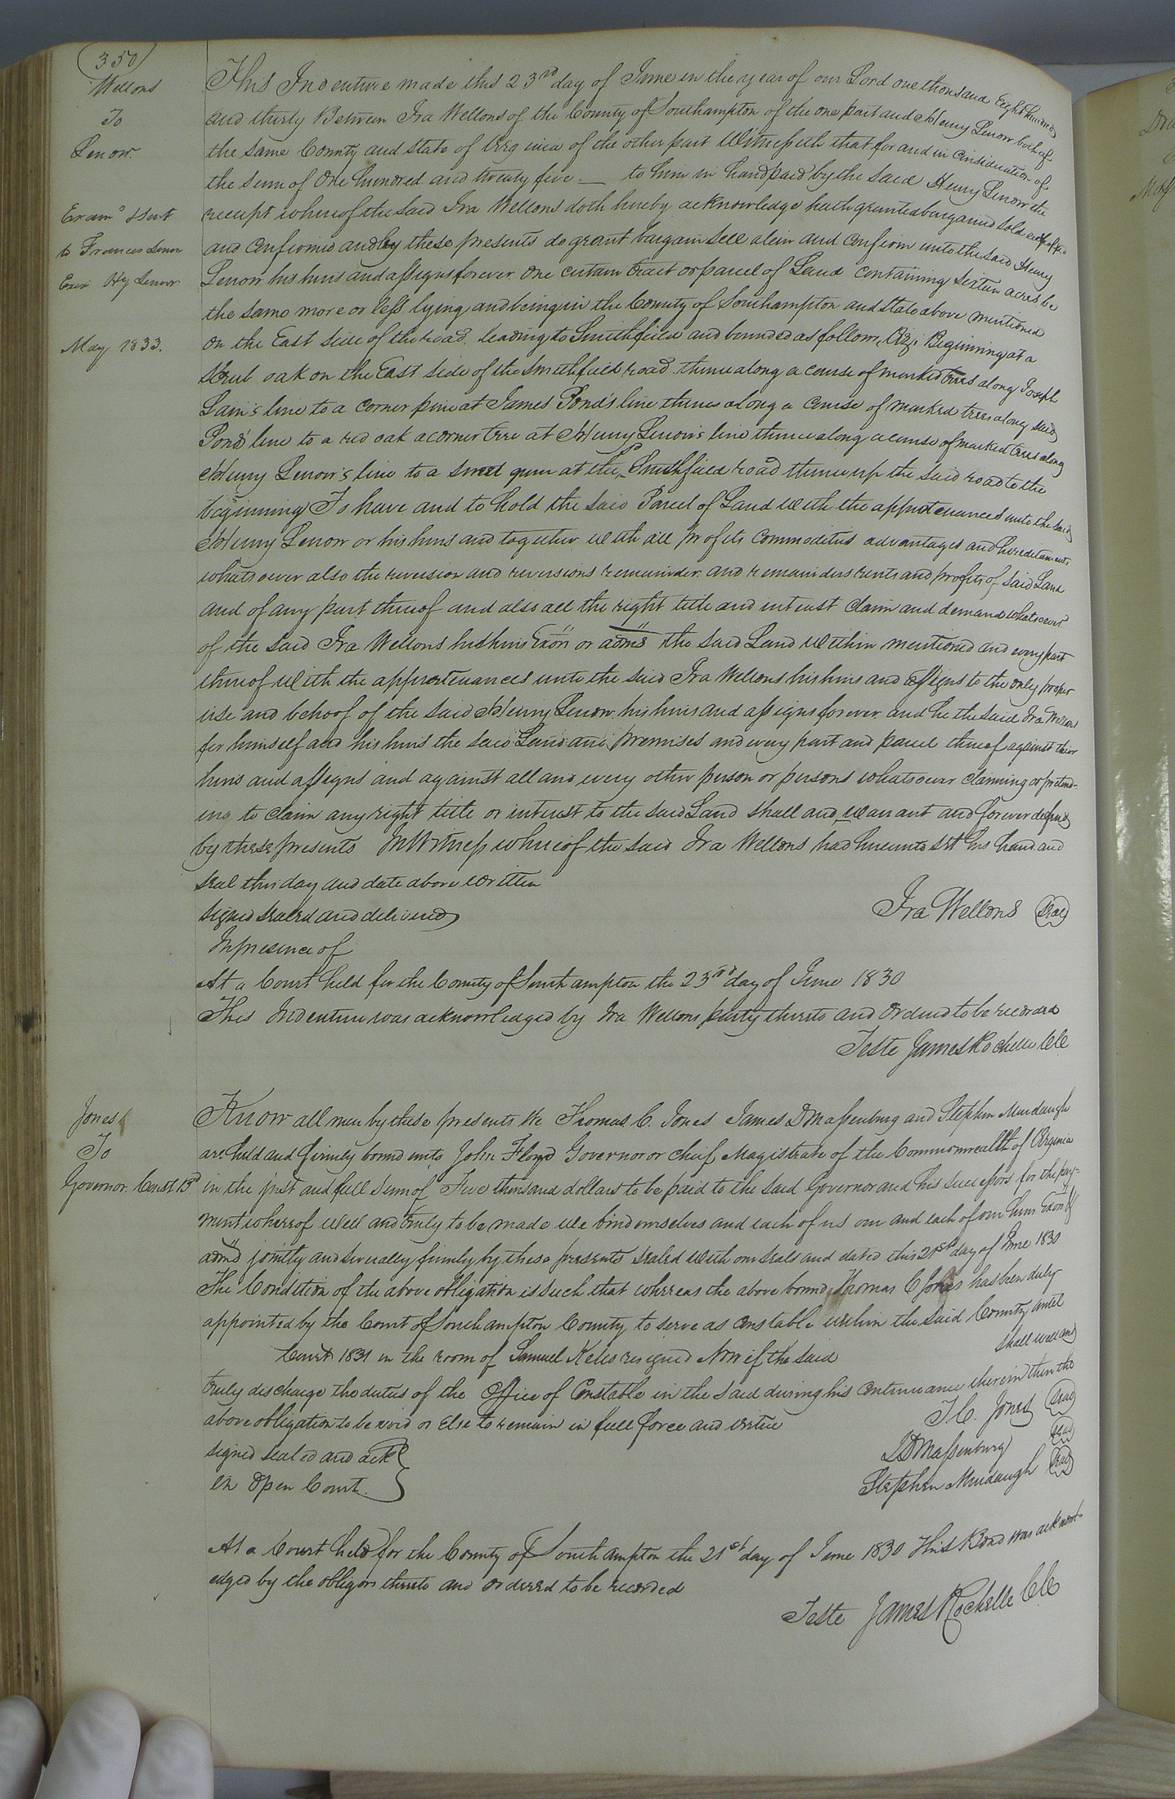 350
Wellons
To
Lenow
Exam.d & sent
to Frances Lenow
Exr. Hy Lenow
May 1833.
This Indenture made this 23rd day of June in the year of our Lord one thousand Eight Hundred
and thirty Between Ira Wellons of the County of Southampton of the one part and Henry Lenow both of
the same County and State of Virginia of the other part Witnesseth that for and in Consideration of
the sum of One hundred and twenty five — to him in hand paid by the said Henry Lenow the
receipt whereof the said Ira Wellons doth hereby acknowledge hath granted bargained sold
and Confirmed and by these presents do grant bargain sell alein and Confirm unto the said Henry
Lenow his heirs and assigns forever One certain tract or parcel of Land containing sixteen acres be
the same more or less lying and being in the County of Southampton and State above mentioned
on the East side of the road leading to Smithfield and bounded as follows, Viz. Beginning at a
Scrub oak on the East side of the Smithfield road thence along a course of marked trees along Joseph
Lain's line to a corner pine at James Pond's line thence along a course of marked trees along said
Pond's line to a red oak a corner tree at Henry Lenow's line thence along a course of marked trees along
Henry Lenow's line to a sweet gum at the Smithfield road thence up the said road to the
beginning To have and to hold the said Parcel of Land with the appurtenances unto the said
Henry Lenow or his heirs and together with all profits commodities advantages and hereditaments
whatsoever also the reversion and reversions remainder and remainders rents and profits of said Land
and of any part thereof and also all the right title and interest claim and demand whatsoever
of the said Ira Wellons his heirs Exors or adms the said Land within mentioned and every part
thereof with the appurtenances unto the said Ira Wellons his heirs and assigns to the only proper
use and behoof of the said Henry Lenow his heirs and assigns forever and he the said Ira Wellons
for himself and his heirs the said Land and premises and every part and parcel thereof against their
heirs and assigns and against all and every other person or persons whatsoever claiming or pretend-
ing to claim any right title or interest to the said Land shall and warrant and forever defend
by these presents In Witness whereof the said Ira Wellons had hereunto set his hand and
seal this day and date above written
Signed sealed and delivered
In presence of
Ira Wellons Seal
At a Court held for the County of Southampton the 23rd day of June 1830
This Indenture was acknowledged by Ira Wellons party thereto and Ordered to be recorded
Teste James Rochelle CC
Jones
To
Governor Const. Bd
Know all men by these presents We Thomas C. Jones James D Massenburg and Stephen Murdaugh
are held and firmly bound unto John Floyd Governor or Chief Magistrate of the Commonwealth of Virginia
in the just and full sum of Five thousand dollars to be paid to the said Governor and his successors for the pay-
ment whereof well and truly to be made we bind ourselves and each of us our and each of our heirs Exors &
adms jointly and severally firmly by these presents sealed with our seals and dated this 21st day of June 1830
The Condition of the above obligation is such that whereas the above bound Thomas C Jones has been duly
appointed by the Court of Southampton County to serve as Constable within the said County until
Court 1831 in the room of Samuel Kelos resigned Now if the said shall well and
truly discharge the duties of the Office of Constable in the said during his continuance therein then the
above obligation to be void or Else to remain in full force and virtue
Signed sealed and ackd
in Open Court.
T. C. Jones Seal
J D Massenburg Seal
Stephen Murdaugh Seal
At a Court held for the County of Southampton the 21st day of June 1830 This Bond was acknowl-
edged by the obligors thereto and ordered to be recorded
Teste James Rochelle CC